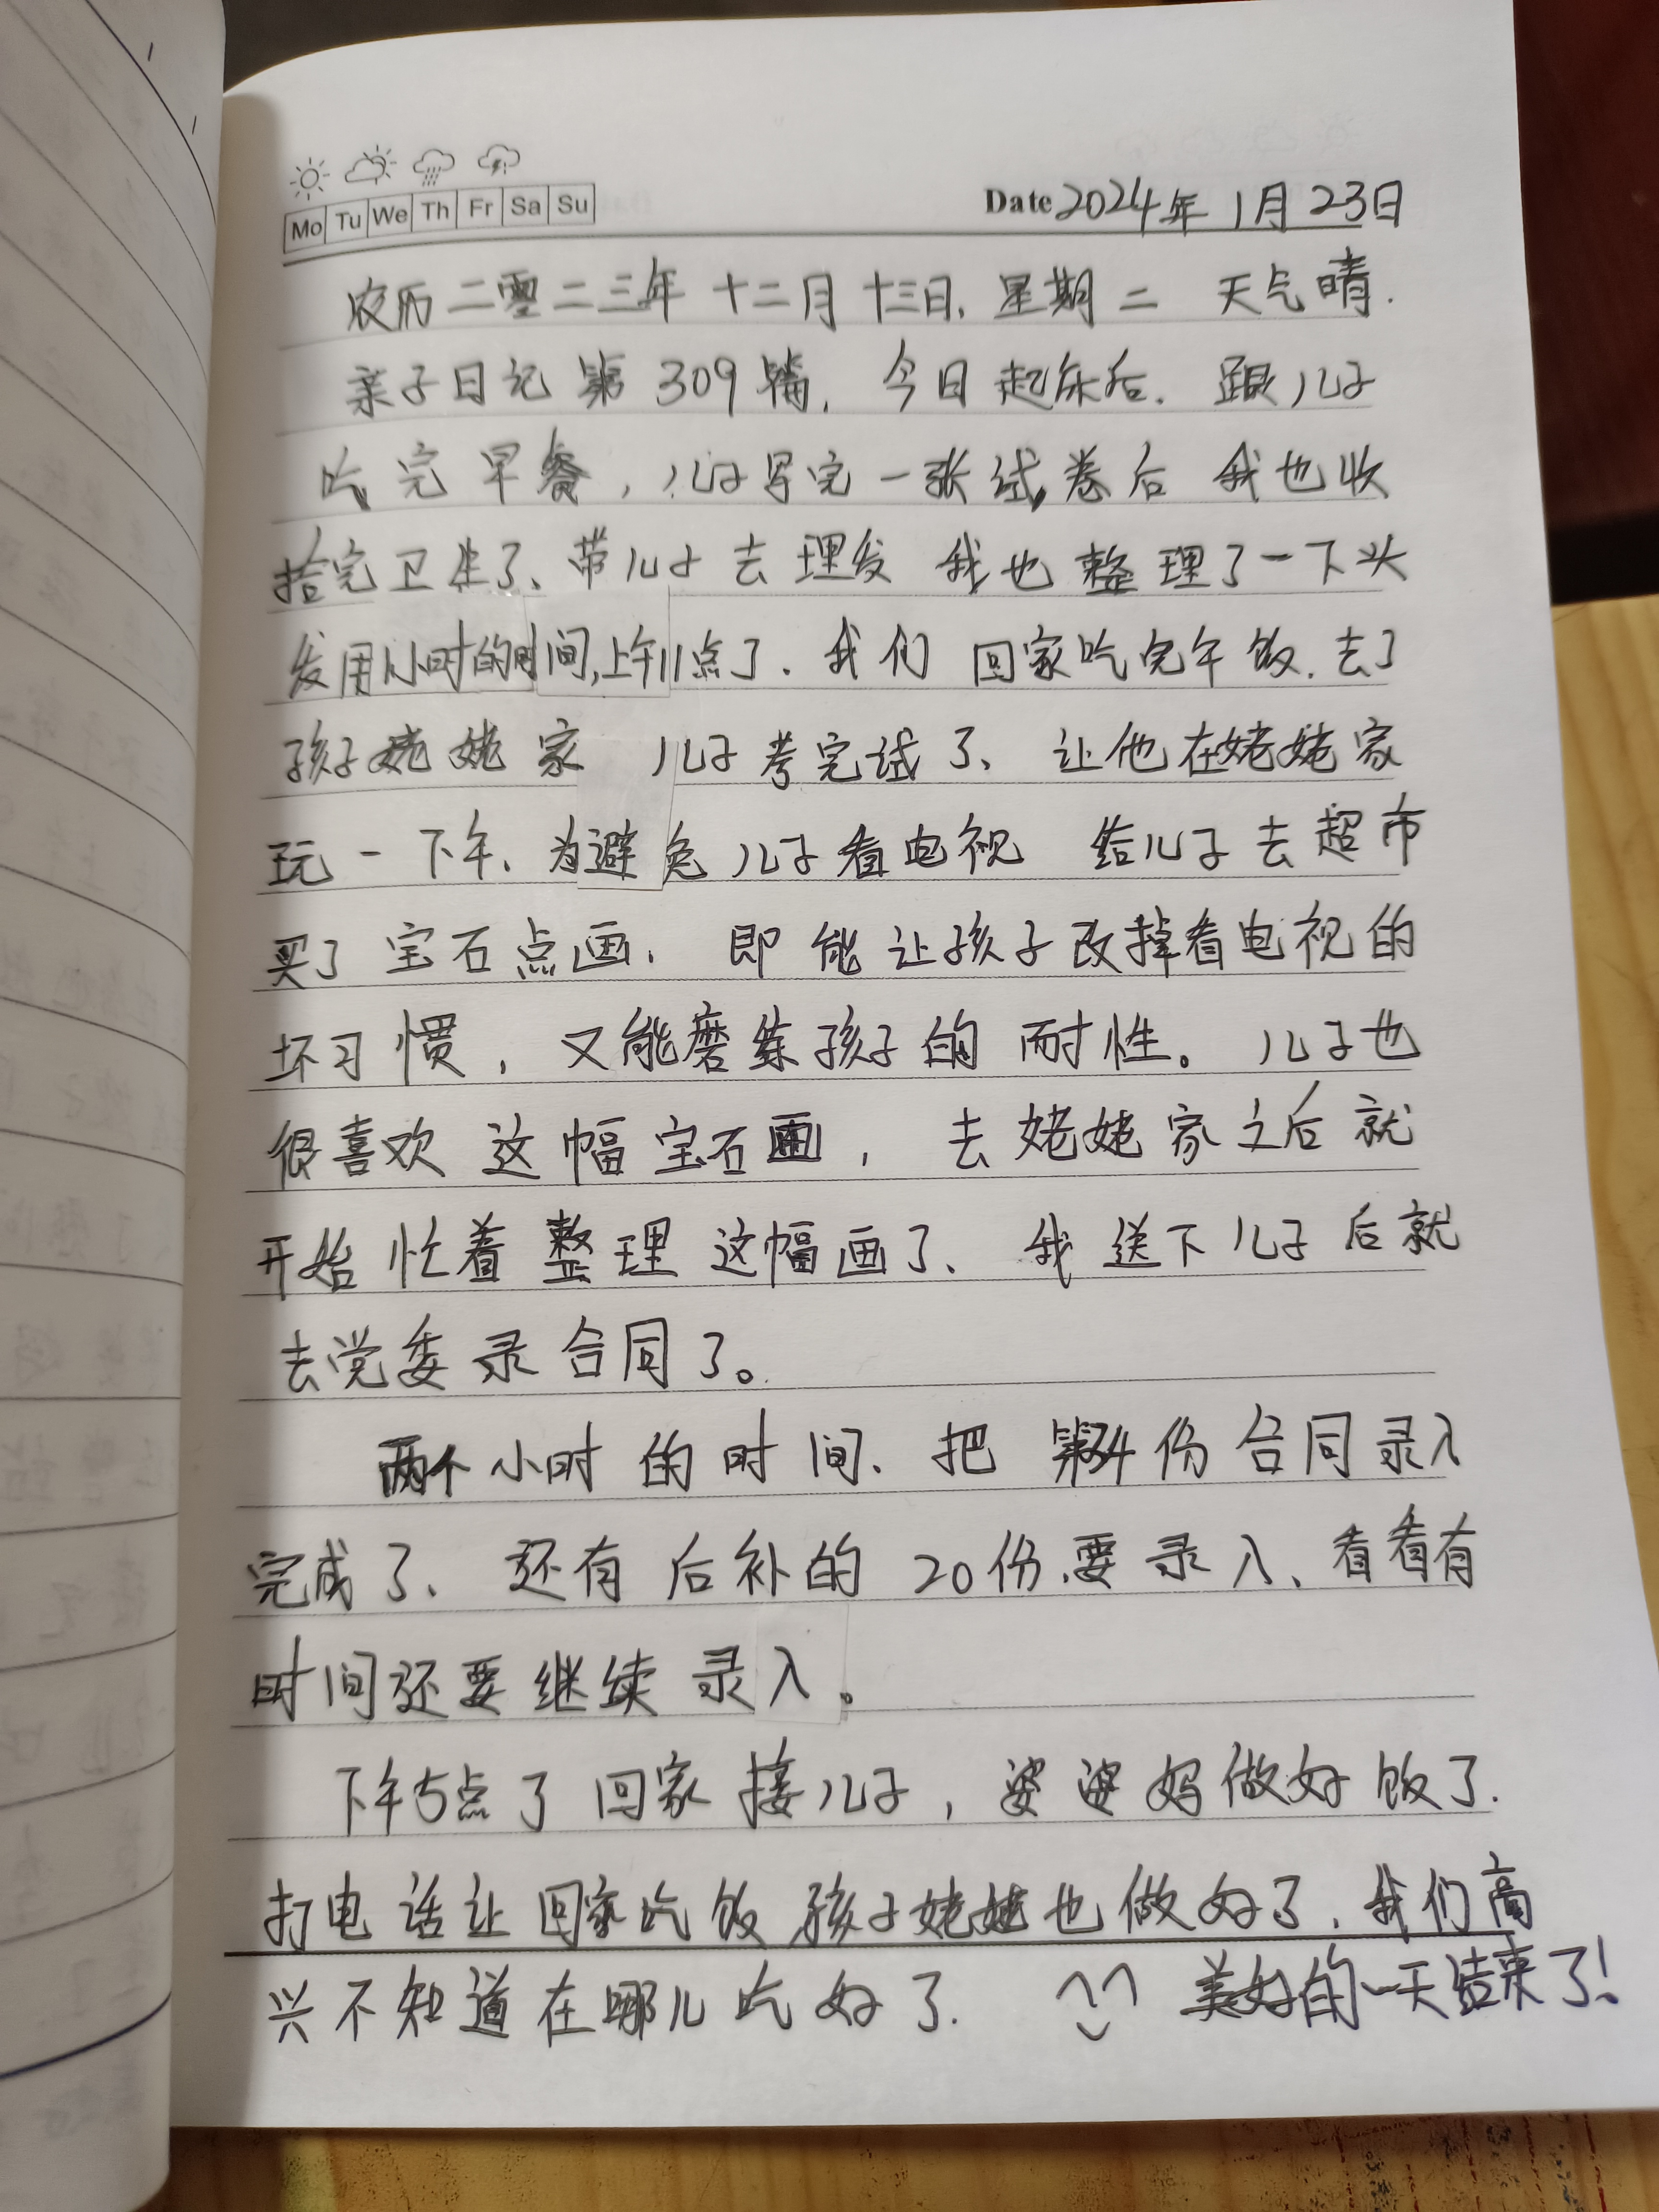 Mo Tu We Th Fr Sa Su
Date 2024年1月23日
农历二零二三年十二月十三日.星期二 天气晴.
亲子日记第309篇.今日起床后.跟儿子
吃完早餐,儿子写完一张试卷后 我也收
拾完卫生了、带儿子去理发 我也整理了一下头
发用1小时的时间,上午11点了.我们回家吃完午饭.去了
孩子姥姥家 儿子考完试了、让他在姥姥家
玩一下午、为避免儿子看电视 给儿子去超市
买了宝石点画.即能让孩子改掉看电视的
坏习惯,又能磨练孩子的耐性。儿子也
很喜欢这幅宝石画,去姥姥家之后就
开始忙着整理这幅画了、我送下儿子后就
去党委录合同了。
两个小时的时间.把第 份合同录入
完成了、还有后补的20份.要录入、看看有
时间还要继续录入。
下午5点了回家接儿子,婆婆妈做好饭了.
打电话让回家吃饭 孩子姥姥也做好了.我们高
兴不知道在哪儿吃好了. 美好的一天结束了!